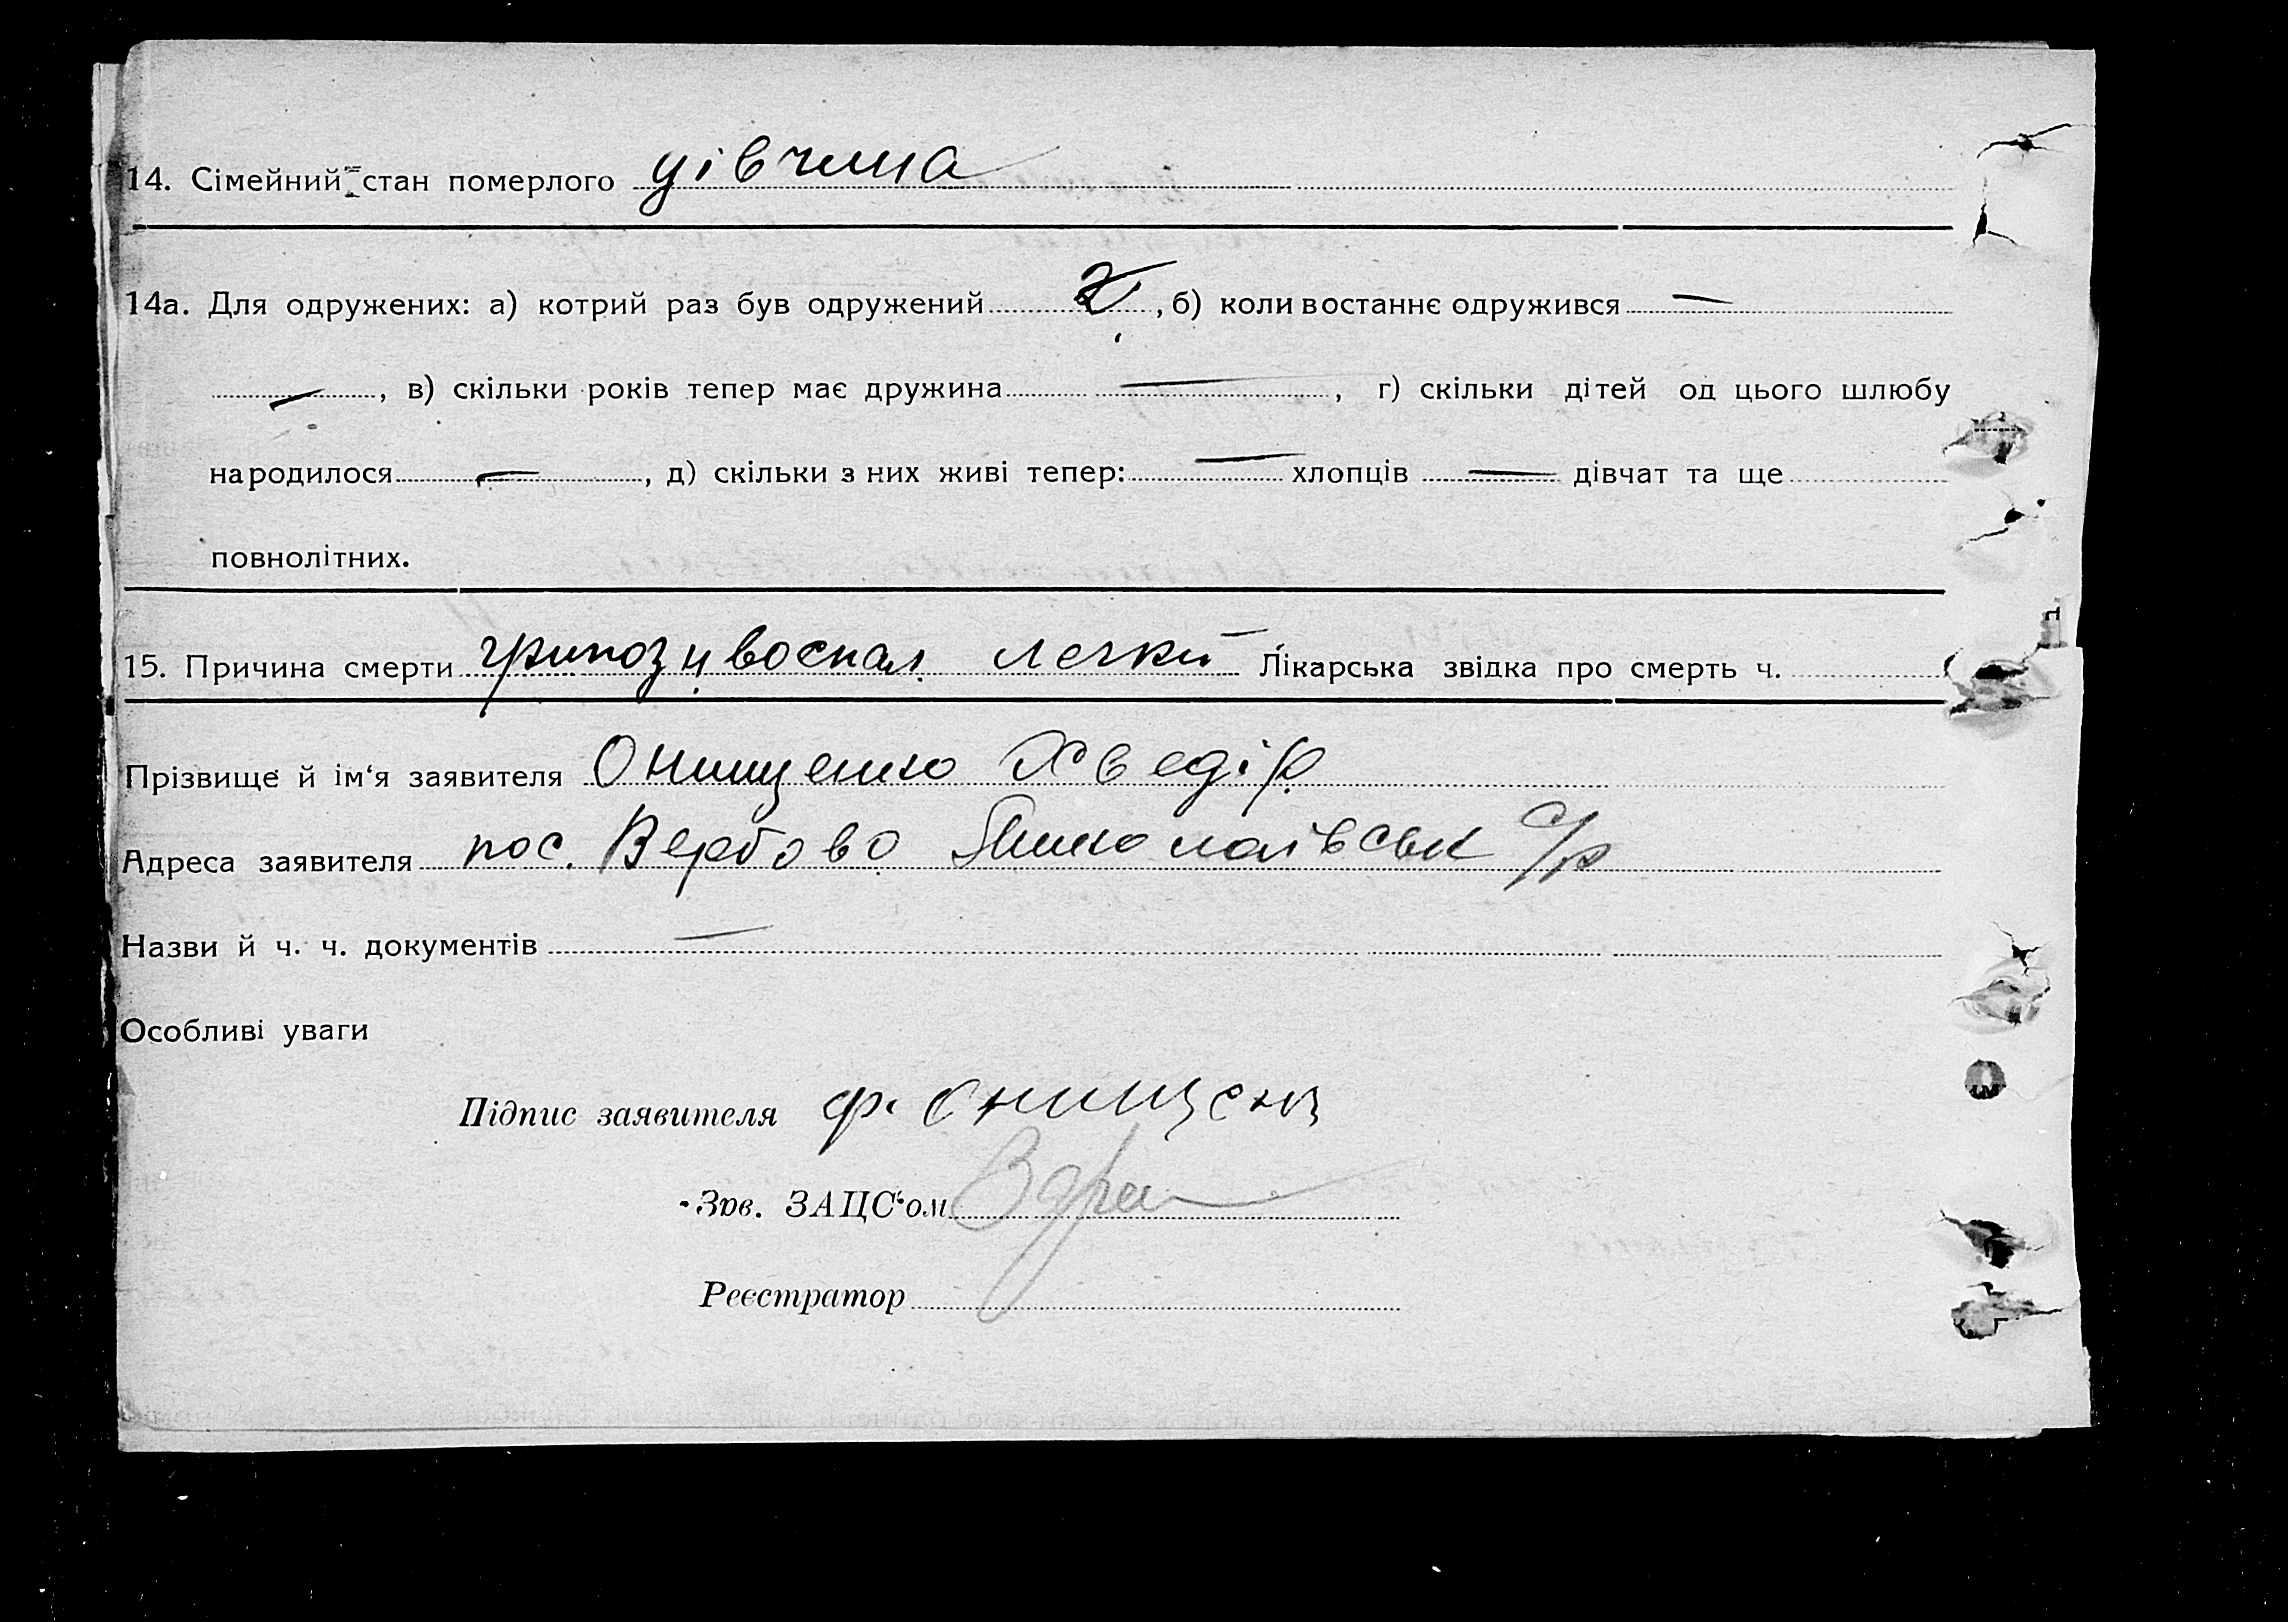 14. Сімейний стан померлого дівчина
14а. Для одружених: а) котрий раз був одружений , б) коли востаннє одружився —
— , в) скільки років тепер має дружина — , г) скільки дітей од цього шлюбу
народилося — , д) скільки з них живі тепер: — хлопців — дівчат та ще
повнолітних.
15. Причина смерти грипоз и воспал легки Лікарська звідка про смерть ч.
Прізвище й ім‘я заявителя Онищенко Хведір
Адреса заявителя пос. Вербово Миколаівськ с/р
Назви й ч. ч. документів —
Особливі уваги
Підпис заявителя Ф. Онищенк
Зав. ЗАЦС‘ом
Реєстратор